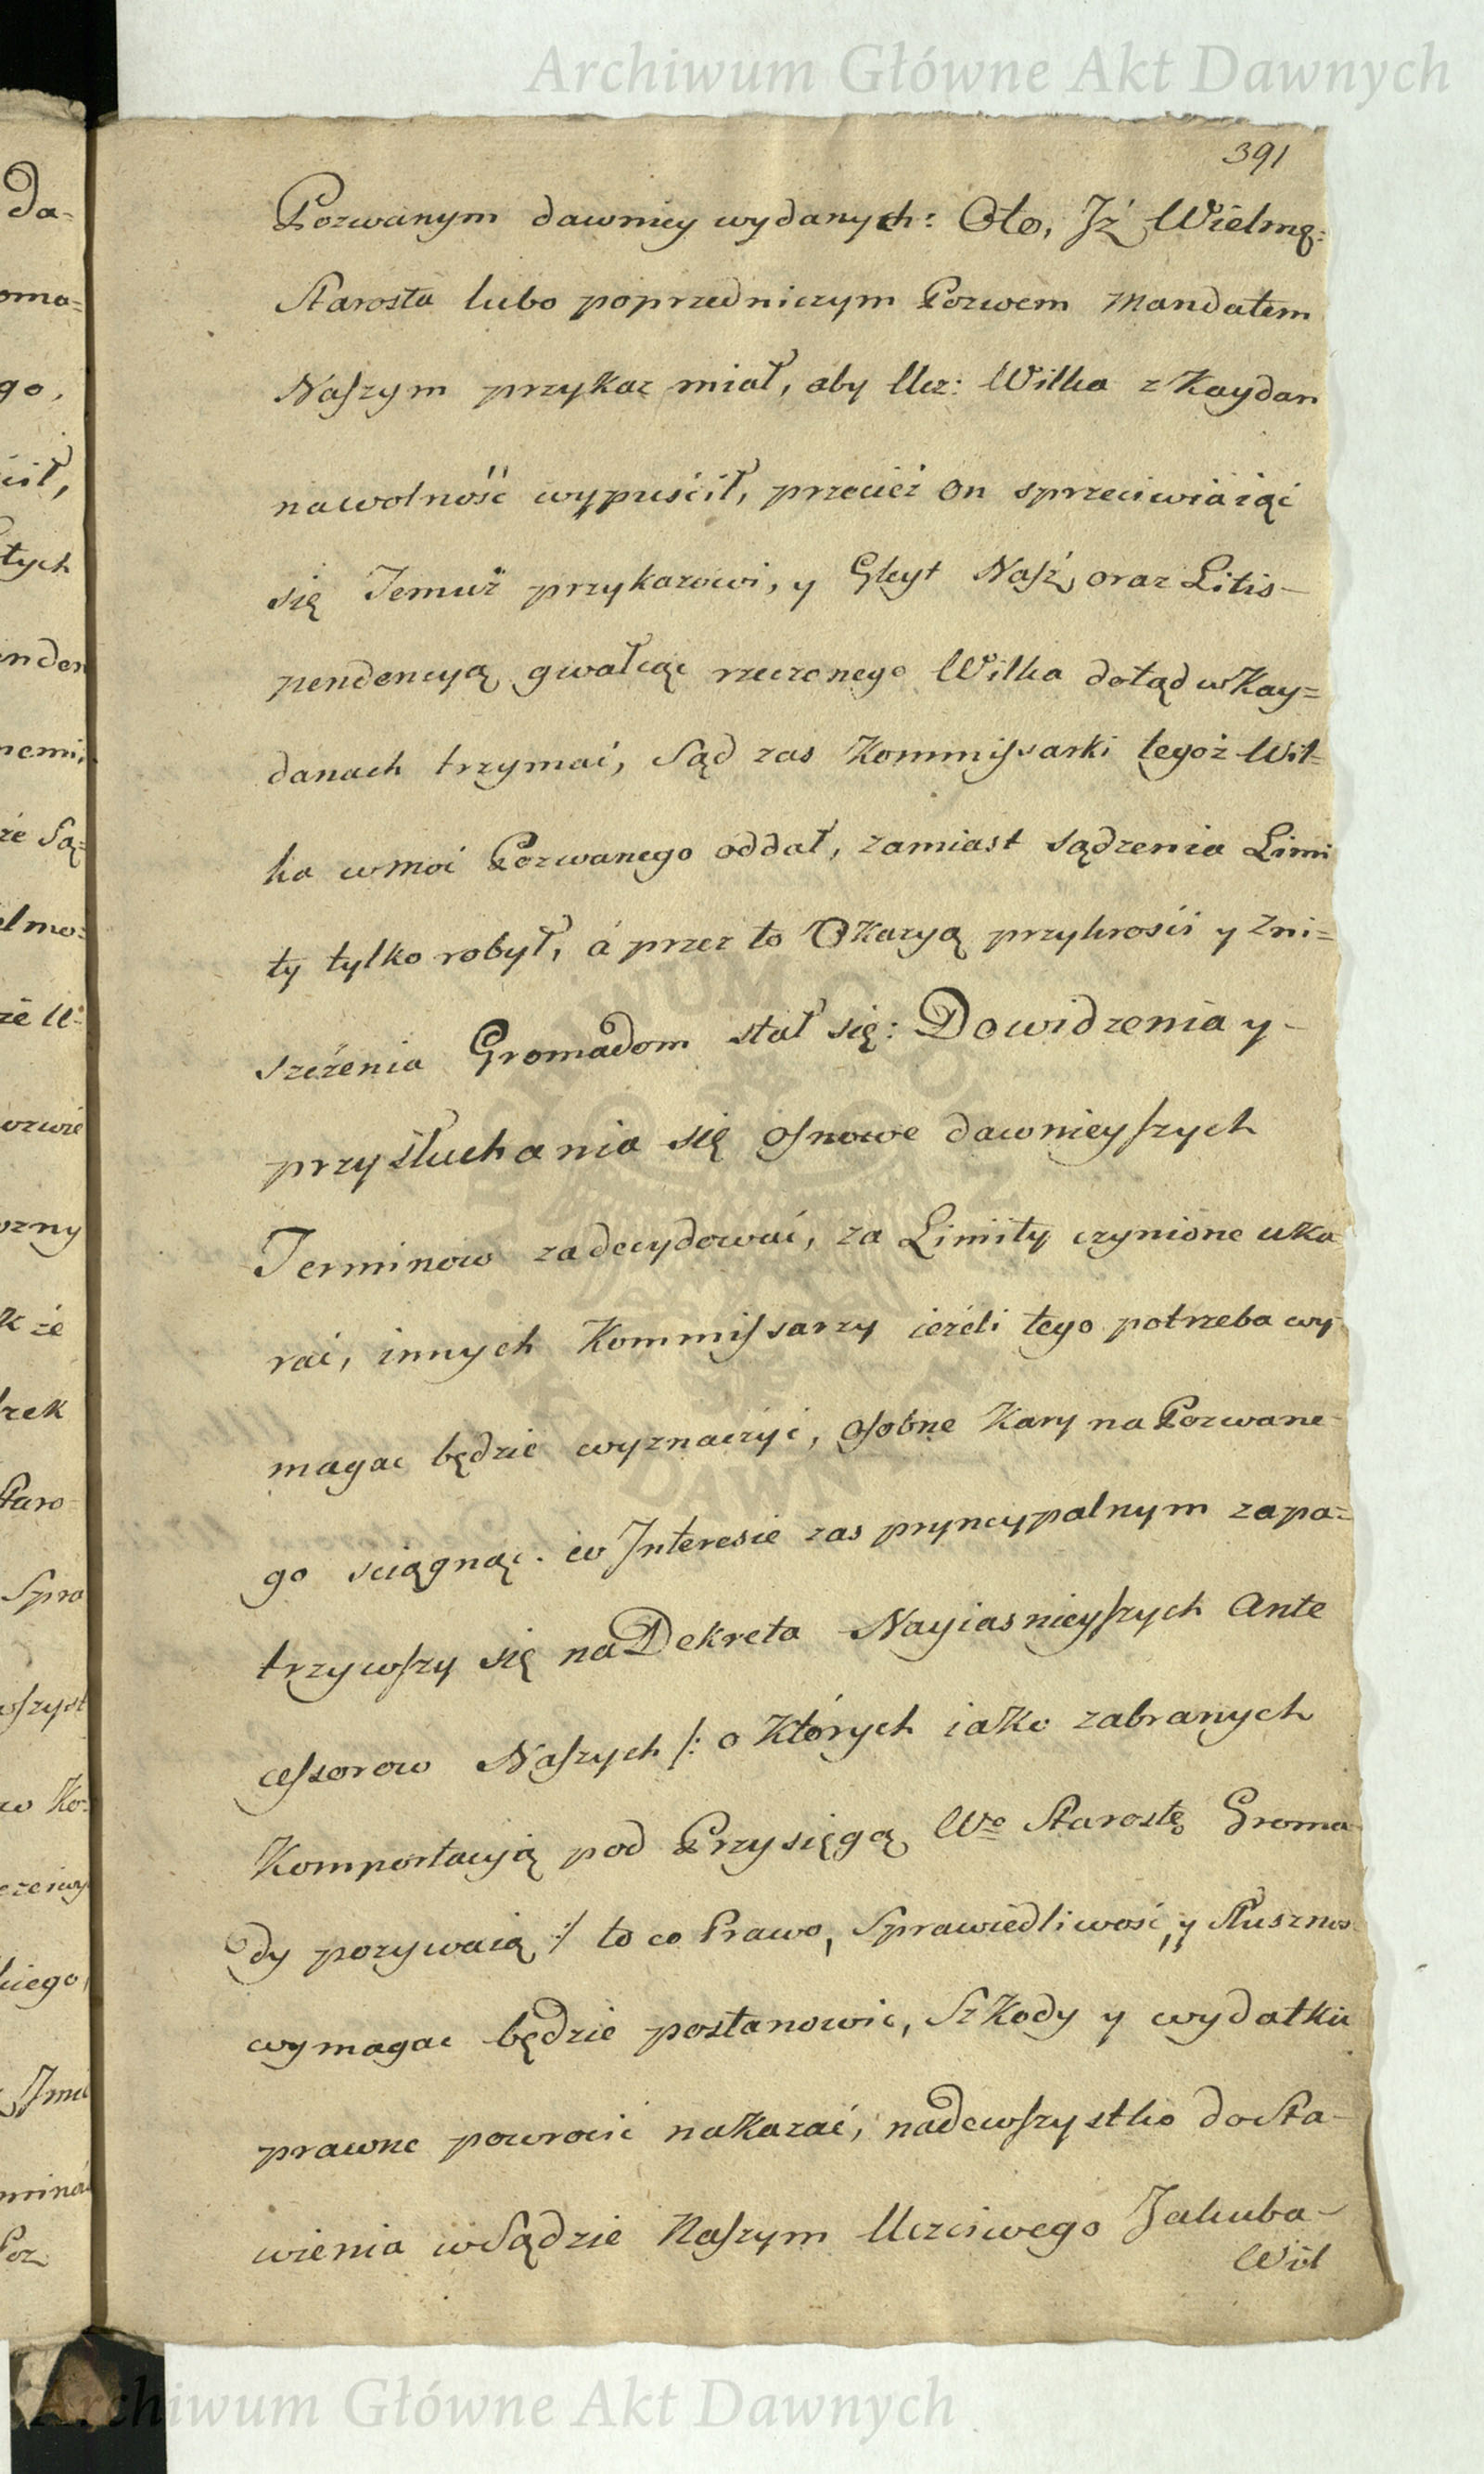 Archiwum Główne Akt Dawnych
391
Pozwanym dawniey wydanych: Oto, Iż Wielmo:
Starosta lubo poprzedniczym Pozwem Mandatem
Naszym przykaz miał, aby Ucz: Wilka z Kaydan
na wolność wypuścił, przecież on sprzeciwiaiąc
się Temuż przykazowi, y Gleyt Nasz, oraz Litis-
pendencyą gwałcąc rzeczonego Wilka dotąd w Kay=
danach trzymać, Sąd zas Kommissarki tegoż Wil=
ka w moc Pozwanego oddał, zamiast sądzenia Limi
ty tylko robył, á przez to Okazyą przykrości y Zni=
szczenia Gromadom stał się: Do widzenia y-
przysłuchania się osnowe dawnieyszych
Terminow zadecydować, za Limity czynione uka
rać, innych Kommissarzy ieźeli tego potrzeba wy
magac będzie wyznaczyć, osobne Kary na Pozwane-
go sciągnąc. w Interesie zas pryncypalnym zapa=
trzywszy się na Dekreta Nayiasnieyszych Ante
cessorow Naszych /: o których iako zabranych
Komportacyią pod Przysięgą Wo Starostę Groma
dy pozywaią :/ to co Prawo, Sprawiedliwość, y Słusznos
wymagac będzie postanowic, Szkody y wydatki
prawne powrocić nakazać, nadewszystko dosta-
wienia w Sądzie Naszym Uczciwego Jakuba-
Wil
da-
oma=
go,
cił,
tych
enden
nemi,
że Są=
elmo:
że U:
ozwie
ozny
k że
rzek
Staro-
Spra
wszyst
w Ko:
kiego,
Imci
Poz
Archiwum Główne Akt Dawnych